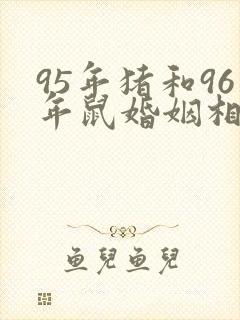 95年猪和96
年鼠婚姻相
鱼兒鱼兒